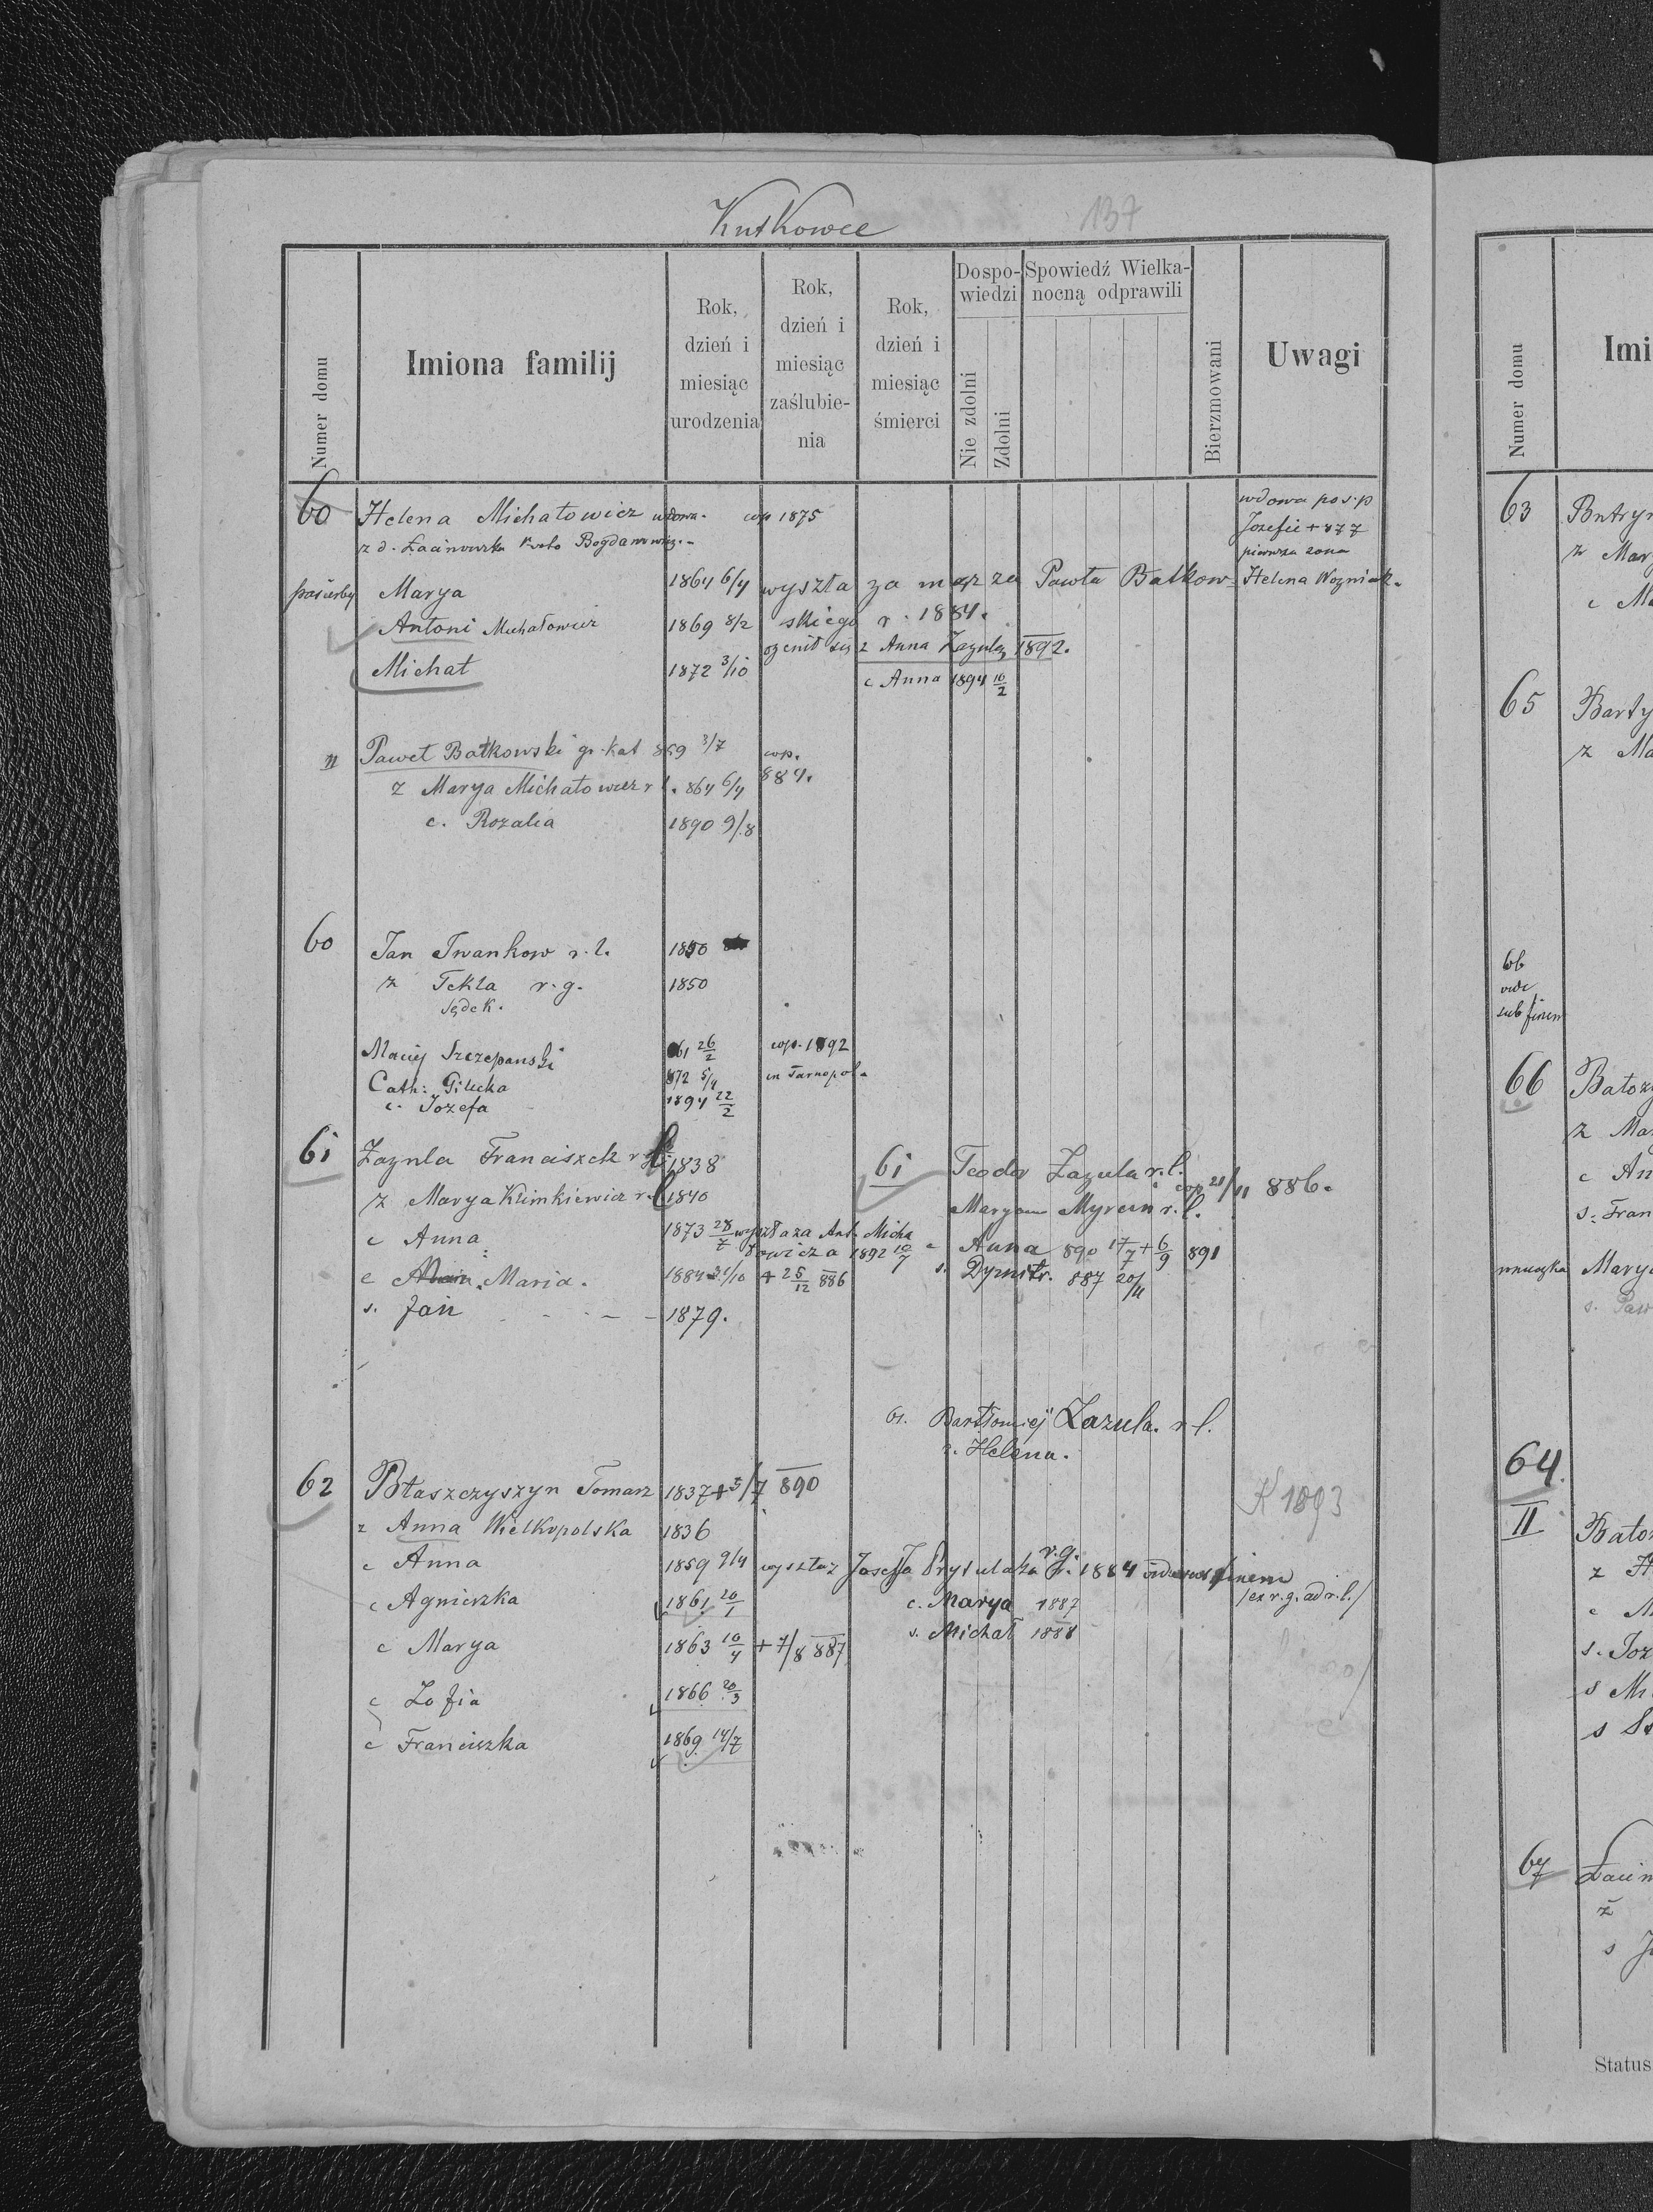 Kutkowce
137
Numer domu
Imiona familij
Rok, dzień i miesiąc urodzenia
Rok, dzień i miesiąc zaślubienia
Rok, dzień i miesiąc śmierci
Dospowiedzi
Nie zdolni
Zdolni
Spowiedź Wielkanocną odprawili
Bierzmowani
Uwagi
60 Helena Michałowicz wdowa. cop 1875 wdowa po s.p
z d. Łacinowska Bogdanowicz. Jozefie + 877
pierwsza zona
pasierby Marya 1864 6/4 wyszła za mąz za Pawła Batkow Helena Wozniak.
Antoni Michałowicz 1869 8/2 skiego r. 1884.
ozenił się z Anna Zazula 1892.
Michał 1872 3/10 c Anna 1894 10/2
II Paweł Batkowski gr. kat 859 3/7 cop.
z Marya Michałowicz r l. 864 6/4 884.
c. Rozalia 1890 9/8
60 Jan Iwankow r. l. 1850
z Tekla r. g. 1850
Maciej Szczepanski 861 26/2 cop. 1892
Cath: Gilecka 872 5/4 in Tarnopol
c. Jozefa 1894 22/2
61 Zazula Franciszek r l 1838
z Marya Klimkiewicz r. l 1840
c Anna 1873 28/7 wyszła za Ant. Micha
łowicza 1892 10/7
c Maria. 1884 31/10 + 25/12 886
s. Jan - - - 1879.
61 Teodor Zazula r. l.
cop 21/11 886.
Maryan Myrcun r. l.
c Anna 890 17/7 + 6/9 891
s. Dymitr. 887 20/11
61. Bartłomiej Zazula. r l.
z. Helena.
62 Błaszczyszyn Tomasz 1837 + 3/7 890
K 1893
z Anna Wielkopolska 1836
c Anna 1859 9/4 wyszła z Josefa Prytulaka r. g. 1884 finem
c Agnieszka 1861 20/1 c. Marya 1887 /ex r. g. ad r. l./
s. Michał 1888
c Marya 1863 10/4 + 7/8 887
c Zofia 1866 20/3
c Franciszka 1869 14/7
Numer domu
Imi
63
z Mar
c Ma
65 Barty
z Ma
66
vide
sub finem
66 Batoz
z Ma
c An
s. Fran
wnuczka Mary
s. Paw
64
II Bato
z H
c M
s. Joz
s Mi
s
67 Łacin
z
s J
Status